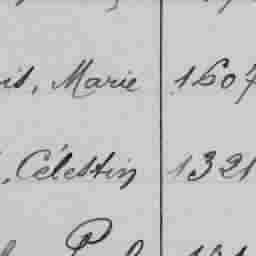 is, Marie 1607
, Célestin 1321